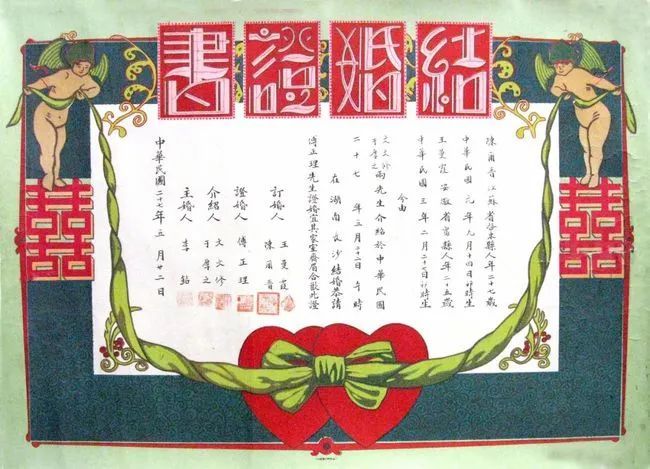 結婚證書
囍
囍
陳爾晉 江蘇省 縣人年二十七歲
中華民國 元年九月十四日卯時生
王曼霞 安徽省 縣人年二十五歲
中華民國 三年二月二十四日卯時生
今由
文文修
于厚之 兩先生介紹於中華民國
二十七年五月二十二日午時
在湖南長沙結婚恭請
傅正理先生證婚宜其家室齊眉合歡此證
訂婚人 王曼霞
陳爾晉
證婚人 傅正理
介紹人 文文修
于厚之
主婚人 李
中華民國二十七年五月廿二日